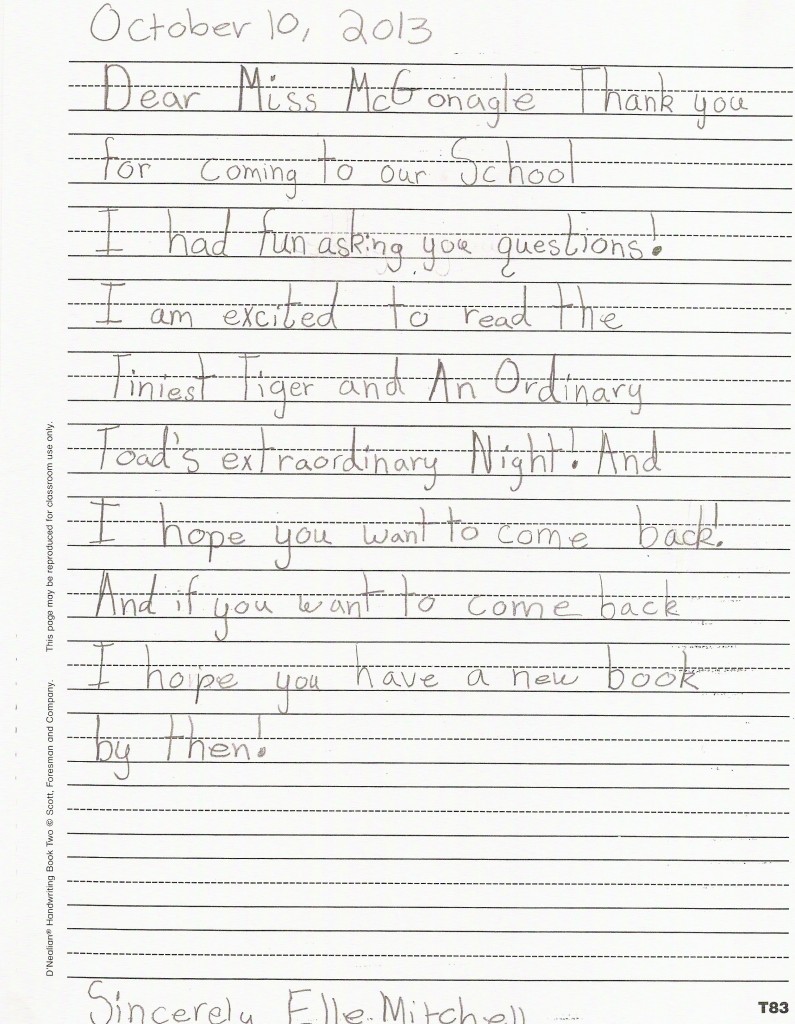 October 10, 2013
Dear Miss McGonagle Thank you
for coming to our School
I had fun asking you questions!
I am excited to read the
Tiniest Tiger and An Ordinary
Toad's extraordinary Night! And
I hope you want to come back!
And if you want to come back
I hope you have a new book
by then!
Sincerely Elle Mitchell
T83
D'Nealian® Handwriting Book Two © Scott, Foresman and Company. This page may be reproduced for classroom use only.